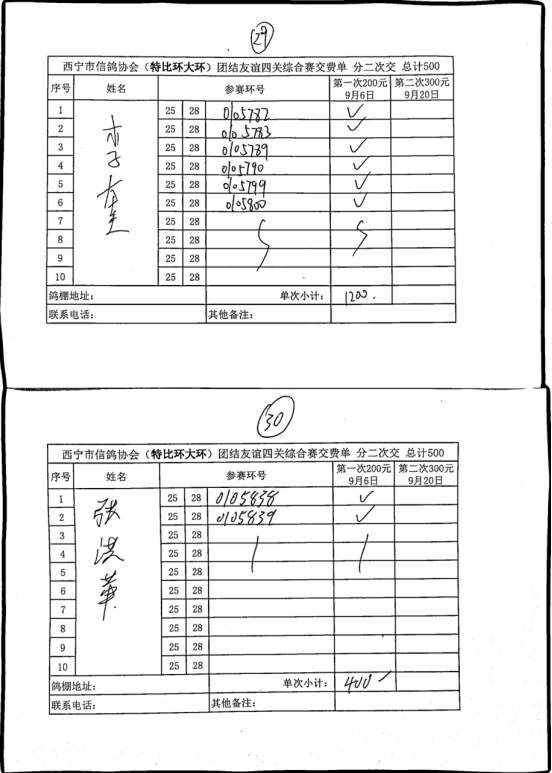 29
西宁市信鸽协会（特比环大环）团结友谊四关综合赛交费单 分二次交 总计500
序号 姓名 参赛环号 第一次200元 9月6日 第二次300元 9月20日
1 25 28 0105782 ✓
2 25 28 0105783 ✓
3 25 28 0105789 ✓
4 25 28 0105790 ✓
5 25 28 0105799 ✓
6 25 28 0105800 ✓
7 25 28
8 25 28
9 25 28
10 25 28
鸽棚地址： 单次小计： 1200.
联系电话： 其他备注：
30
西宁市信鸽协会（特比环大环）团结友谊四关综合赛交费单 分二次交 总计500
序号 姓名 参赛环号 第一次200元 9月6日 第二次300元 9月20日
张洪华
1 25 28 0105838 ✓
2 25 28 0105839 ✓
3 25 28
4 25 28
5 25 28
6 25 28
7 25 28
8 25 28
9 25 28
10 25 28
鸽棚地址： 单次小计： 400
联系电话： 其他备注：